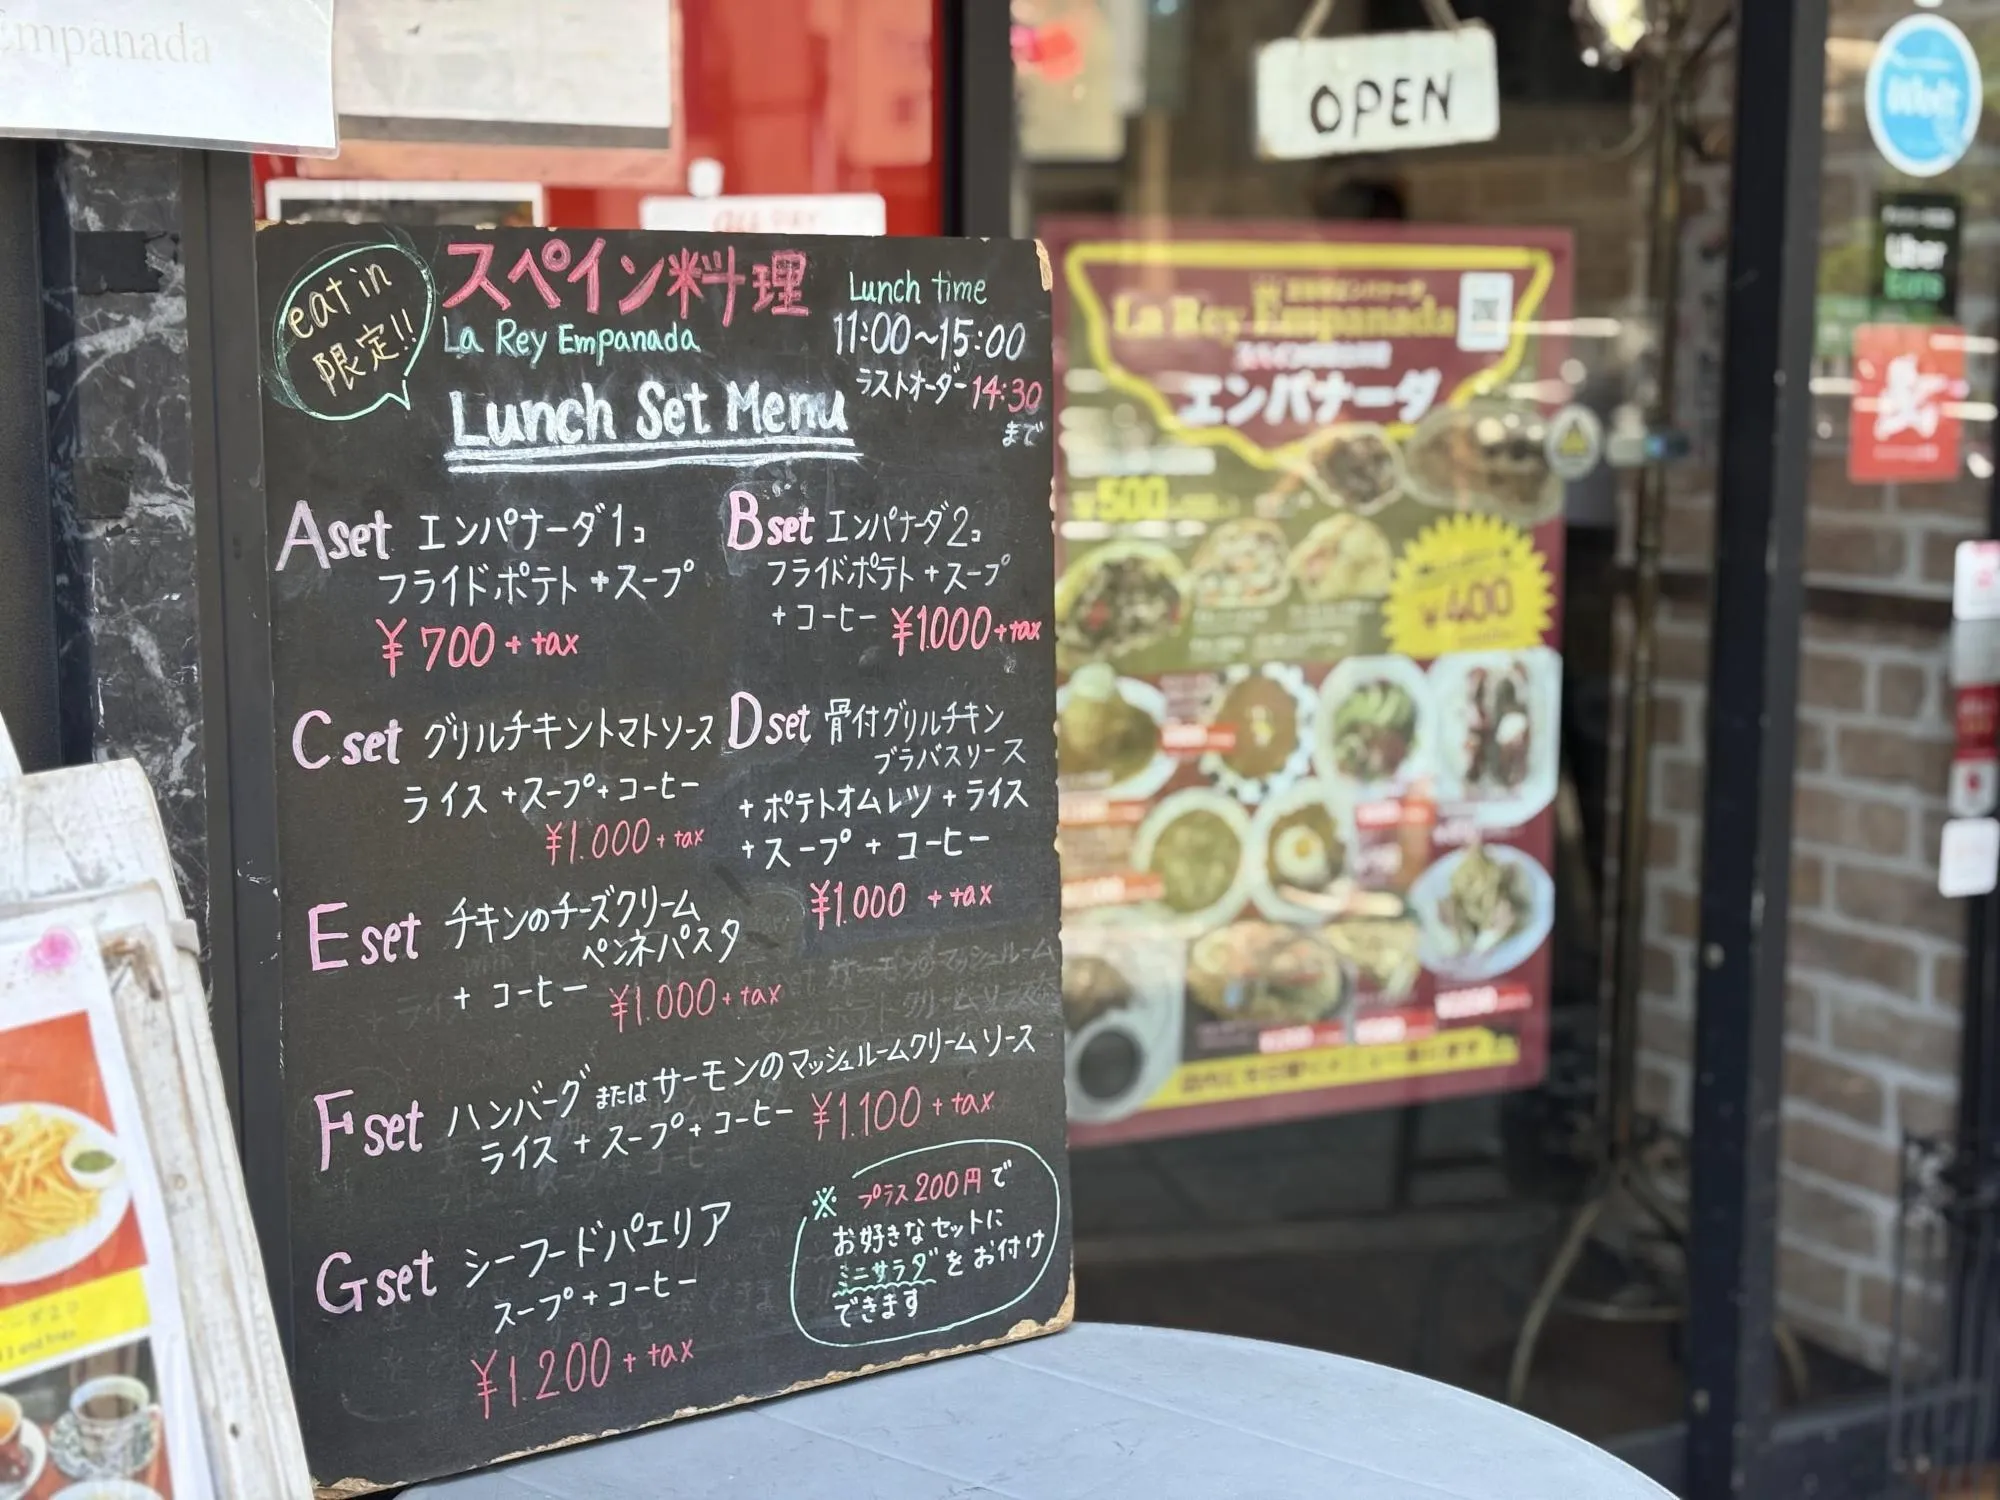 Empanada
OPEN
eat in
限定!!
スペイン料理
La Rey Empanada
Lunch time
11:00~15:00
ラストオーダー 14:30
まで
Lunch Set Menu
A set エンパナーダ1コ
フライドポテト+スープ
¥700+tax
B set エンパナーダ2コ
フライドポテト+スープ
+コーヒー ¥1000+tax
C set グリルチキントマトソース
ライス+スープ+コーヒー
¥1.000+tax
D set 骨付グリルチキン
ブラバスソース
+ポテトオムレツ+ライス
+スープ+コーヒー
¥1.000+tax
E set チキンのチーズクリーム
ペンネパスタ
+コーヒー ¥1.000+tax
F set ハンバーグまたはサーモンのマッシュルームクリームソース
ライス+スープ+コーヒー ¥1.100+tax
G set シーフードパエリア
スープ+コーヒー
¥1.200+tax
※ プラス200円で
お好きなセットに
ミニサラダをお付け
できます
La Rey Empanada
エンパナーダ
¥500
¥400
Uber
Eats